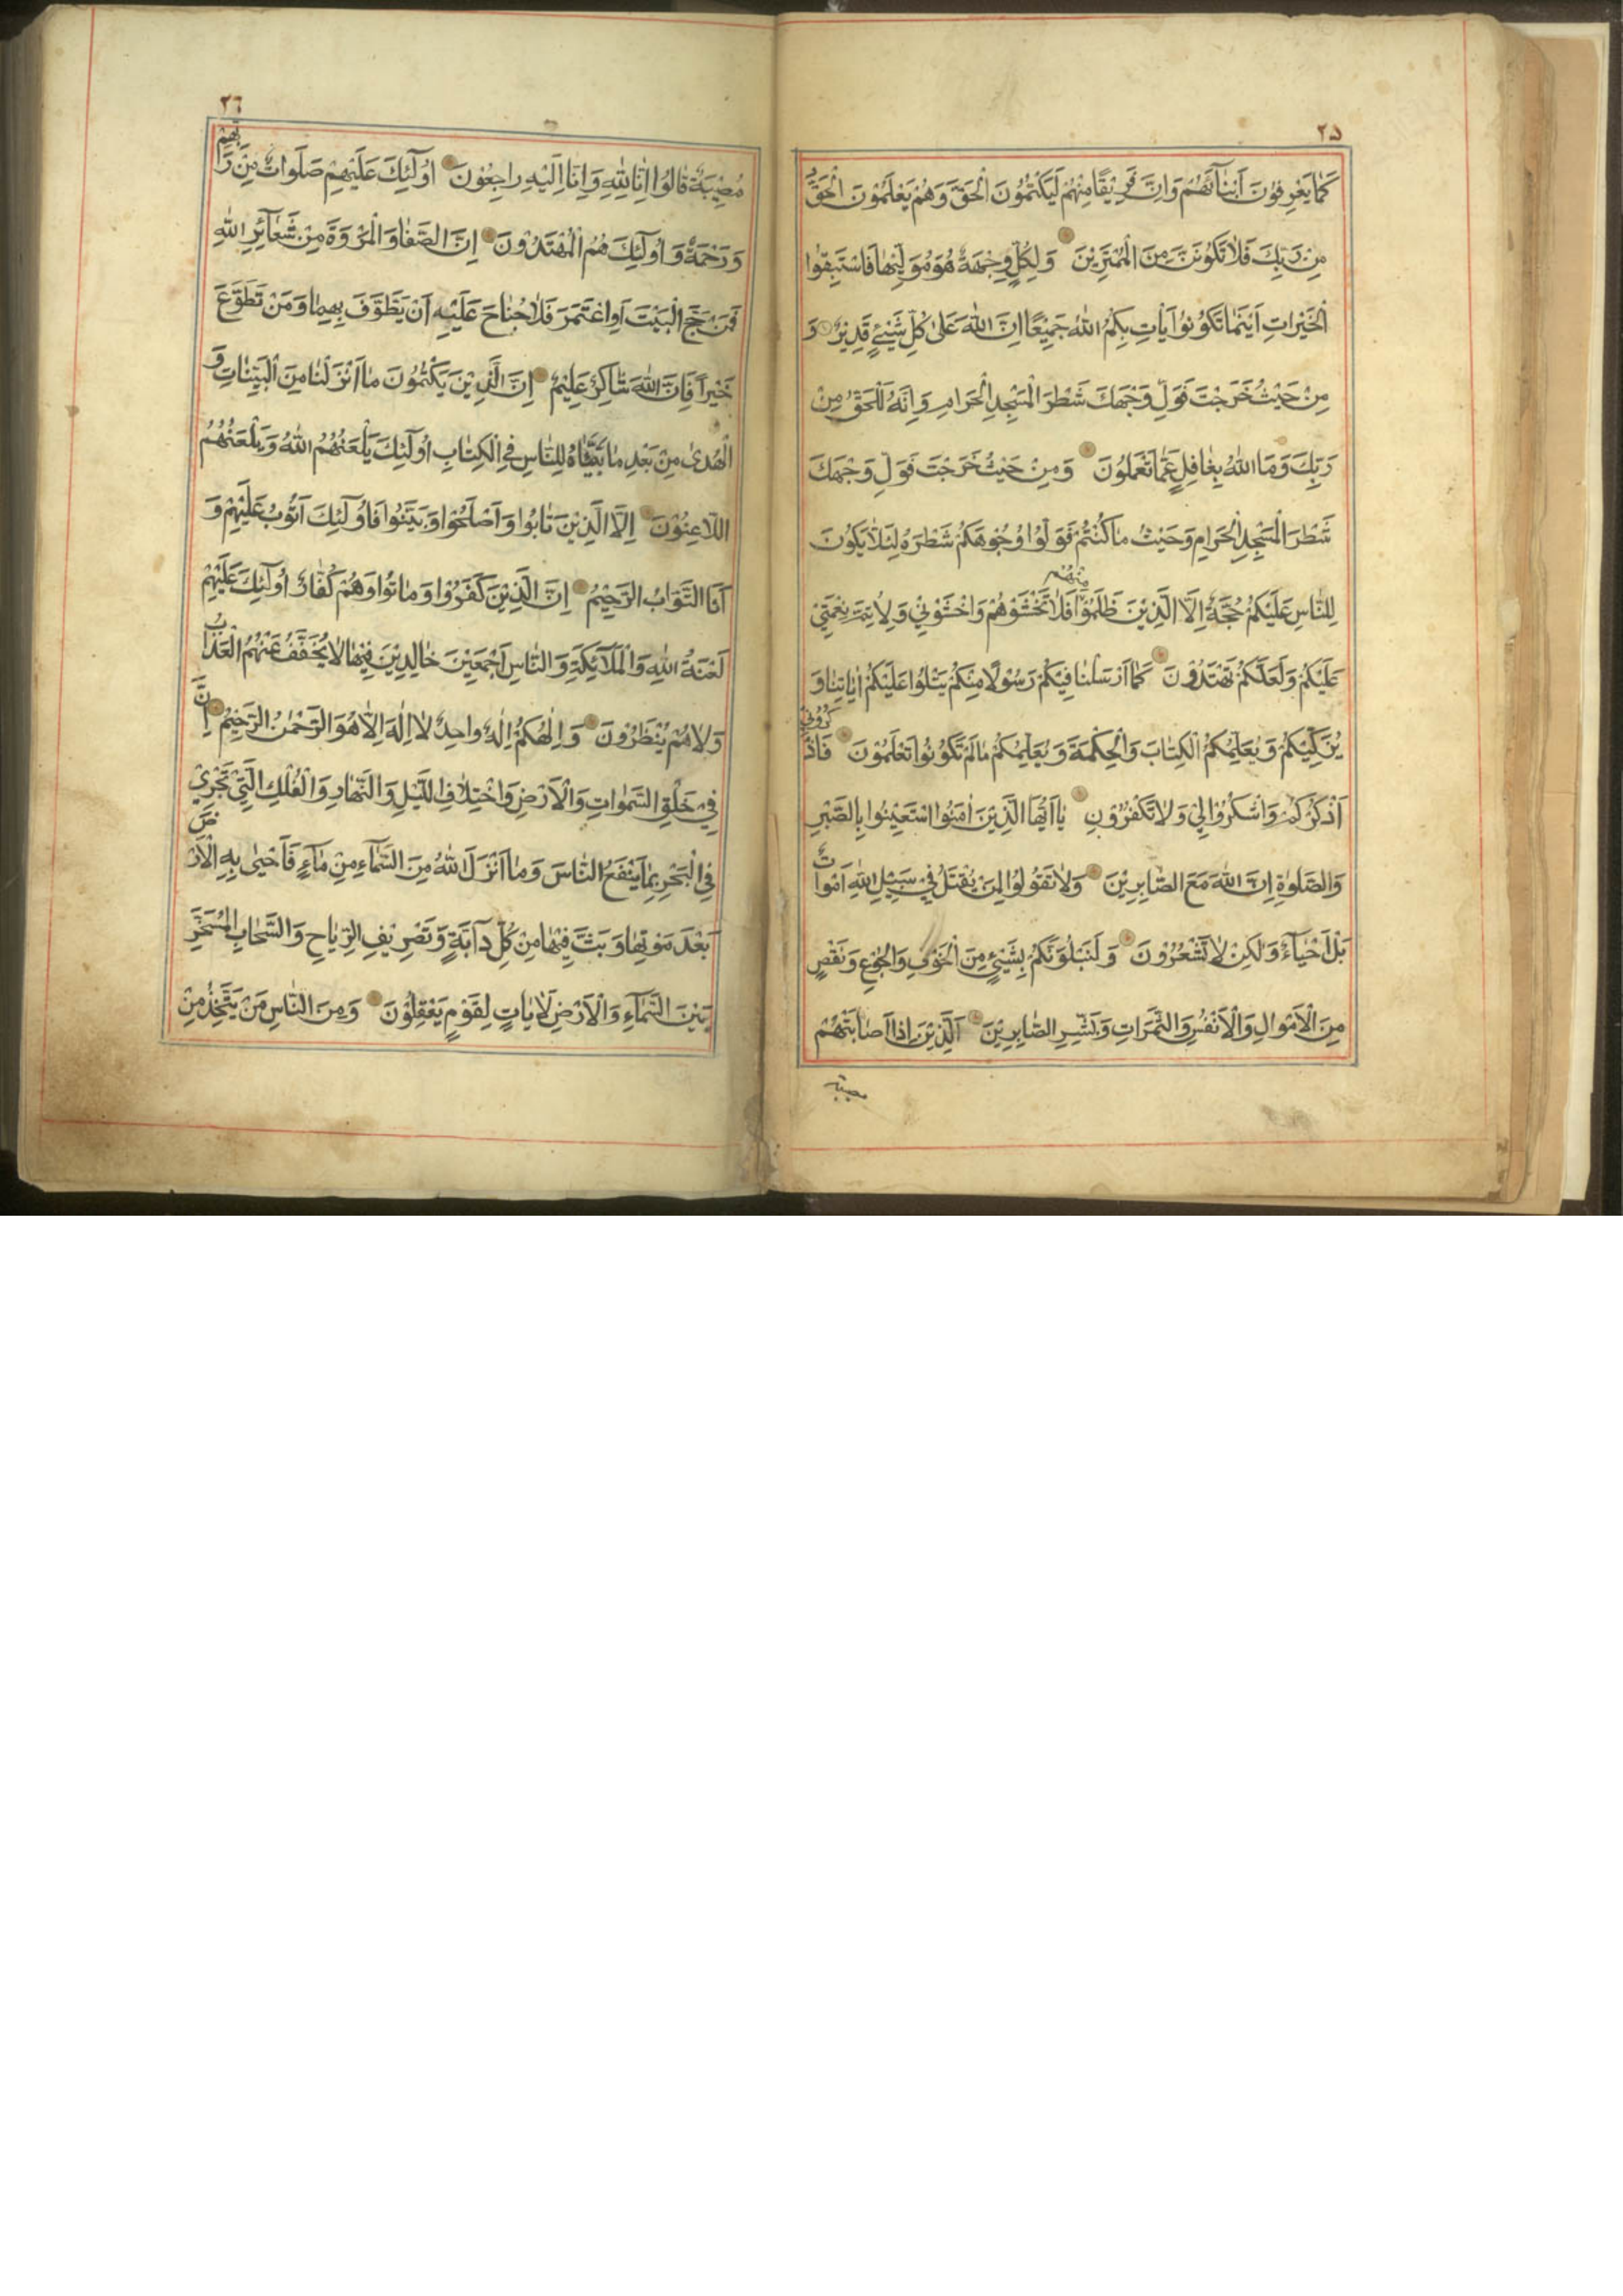 ٢۵
كَمٰا يَعْرِفُونَ أَبْنٰآئَهُمْ وَاِنَّ فَرِيْقًا مِنْهُمْ لَيَكْتُمُونَ الْحَقَّ وَهُمْ يَعْلَمُوْنَ الْحَقُّ
مِنْ رَبِّكَ فَلاٰ تَكُوْنَنَّ مِنَ الْمُمْتَرِيْنَ وَلِكُلٍّ وِجْهَةٌ هُوَ مُوَلِّيْهٰا فَاسْتَبِقُوا
الْخَيْرٰاتِ اَيْنَمٰا تَكُوْنُوْا يَأْتِ بِكُمُ اللّٰهُ جَمِيْعًا اِنَّ اللّٰهَ عَلىٰ كُلِّ شَيْئٍ قَدِيْرٌ وَ
مِنْ حَيْثُ خَرَجْتَ فَوَلِّ وَجْهَكَ شَطْرَ الْمَسْجِدِ الْحَرٰامِ وَاِنَّهُ لَلْحَقُّ مِنْ
رَبِّكَ وَمَا اللّٰهُ بِغٰافِلٍ عَمّٰا تَعْمَلُوْنَ وَمِنْ حَيْثُ خَرَجْتَ فَوَلِّ وَجْهَكَ
شَطْرَ الْمَسْجِدِ الْحَرٰامِ وَحَيْثُ مٰا كُنْتُمْ فَوَلُّوْا وُجُوْهَكُمْ شَطْرَهُ لِئَلاّٰ يَكُوْنَ
لِلنّٰاسِ عَلَيْكُمْ حُجَّةٌ اِلاَّ الَّذِيْنَ ظَلَمُوْا مِنْهُمْ فَلاٰ تَخْشَوْهُمْ وَاخْشَوْنِيْ وَلِأُتِمَّ نِعْمَتِيْ
عَلَيْكُمْ وَلَعَلَّكُمْ تَهْتَدُوْنَ كَمٰا اَرْسَلْنٰا فِيْكُمْ رَسُوْلًا مِنْكُمْ يَتْلُوْا عَلَيْكُمْ اٰيٰاتِنٰا وَ
يُزَكِّيْكُمْ وَيُعَلِّمُكُمُ الْكِتٰابَ وَالْحِكْمَةَ وَيُعَلِّمُكُمْ مٰا لَمْ تَكُوْنُوْا تَعْلَمُوْنَ فَاذْكُرُوْنِيْ
اَذْكُرْكُمْ وَاشْكُرُوْا لِيْ وَلاٰ تَكْفُرُوْنِ يٰا اَيُّهَا الَّذِيْنَ اٰمَنُوا اسْتَعِيْنُوْا بِالصَّبْرِ
وَالصَّلٰوةِ اِنَّ اللّٰهَ مَعَ الصّٰابِرِيْنَ وَلاٰ تَقُوْلُوْا لِمَنْ يُقْتَلُ فِيْ سَبِيْلِ اللّٰهِ اَمْوٰاتٌ
بَلْ اَحْيٰآءٌ وَلٰكِنْ لاٰ تَشْعُرُوْنَ وَلَنَبْلُوَنَّكُمْ بِشَيْئٍ مِنَ الْخَوْفِ وَالْجُوْعِ وَنَقْصٍ
مِنَ الْاَمْوٰالِ وَالْاَنْفُسِ وَالثَّمَرٰاتِ وَبَشِّرِ الصّٰابِرِيْنَ اَلَّذِيْنَ اِذٰا اَصٰابَتْهُمْ
مصيبة
٢٦
مُصِيْبَةٌ قٰالُوْا اِنّٰا لِلّٰهِ وَاِنّٰا اِلَيْهِ رٰاجِعُوْنَ اُولٰٓئِكَ عَلَيْهِمْ صَلَوٰاتٌ مِنْ رَبِّهِمْ
وَرَحْمَةٌ وَاُولٰٓئِكَ هُمُ الْمُهْتَدُوْنَ اِنَّ الصَّفٰا وَالْمَرْوَةَ مِنْ شَعٰآئِرِ اللّٰهِ
فَمَنْ حَجَّ الْبَيْتَ اَوِ اعْتَمَرَ فَلاٰ جُنٰاحَ عَلَيْهِ اَنْ يَطَّوَّفَ بِهِمٰا وَمَنْ تَطَوَّعَ
خَيْرًا فَاِنَّ اللّٰهَ شٰاكِرٌ عَلِيْمٌ اِنَّ الَّذِيْنَ يَكْتُمُوْنَ مٰا اَنْزَلْنٰا مِنَ الْبَيِّنٰاتِ وَ
الْهُدىٰ مِنْ بَعْدِ مٰا بَيَّنّٰاهُ لِلنّٰاسِ فِي الْكِتٰابِ اُولٰٓئِكَ يَلْعَنُهُمُ اللّٰهُ وَيَلْعَنُهُمُ
اللاّٰعِنُوْنَ اِلاَّ الَّذِيْنَ تٰابُوْا وَاَصْلَحُوْا وَبَيَّنُوْا فَاُولٰٓئِكَ اَتُوْبُ عَلَيْهِمْ وَ
اَنَا التَّوّٰابُ الرَّحِيْمُ اِنَّ الَّذِيْنَ كَفَرُوْا وَمٰاتُوْا وَهُمْ كُفّٰارٌ اُولٰٓئِكَ عَلَيْهِمْ
لَعْنَةُ اللّٰهِ وَالْمَلآٰئِكَةِ وَالنّٰاسِ اَجْمَعِيْنَ خٰالِدِيْنَ فِيْهٰا لاٰ يُخَفَّفُ عَنْهُمُ الْعَذٰابُ
وَلاٰ هُمْ يُنْظَرُوْنَ وَاِلٰهُكُمْ اِلٰهٌ وٰاحِدٌ لاٰ اِلٰهَ اِلاّٰ هُوَ الرَّحْمٰنُ الرَّحِيْمُ اِنَّ
فِيْ خَلْقِ السَّمٰوٰاتِ وَالْاَرْضِ وَاخْتِلاٰفِ اللَّيْلِ وَالنَّهٰارِ وَالْفُلْكِ الَّتِيْ تَجْرِيْ
فِي الْبَحْرِ بِمٰا يَنْفَعُ النّٰاسَ وَمٰا اَنْزَلَ اللّٰهُ مِنَ السَّمٰآءِ مِنْ مٰآءٍ فَاَحْيٰى بِهِ الْاَرْضَ
بَعْدَ مَوْتِهٰا وَبَثَّ فِيْهٰا مِنْ كُلِّ دٰآبَّةٍ وَتَصْرِيْفِ الرِّيٰاحِ وَالسَّحٰابِ الْمُسَخَّرِ
بَيْنَ السَّمٰآءِ وَالْاَرْضِ لَاٰيٰاتٍ لِقَوْمٍ يَعْقِلُوْنَ وَمِنَ النّٰاسِ مَنْ يَتَّخِذُ مِنْ